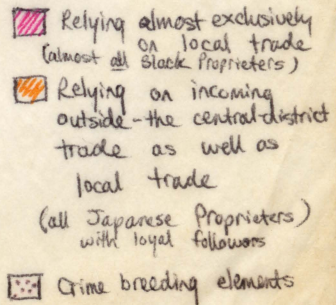 Relying almost exclusively
on local trade
(almost all Black Proprieters)
Relying on incoming
outside-the central-district
trade as well as
local trade
(all Japanese Proprieters)
with loyal followers
Crime breeding elements